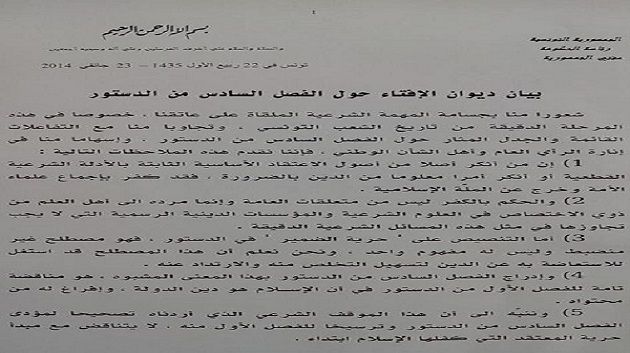 بسم الله الرحمن الرحيم
والصلاة والسلام على أشرف المرسلين وعلى آله وصحبه أجمعين
الجمهورية التونسية
رئاسة الحكومة
مفتي الجمهورية
تونس في 22 ربيع الأول 1435 – 23 جانفي 2014
بيان ديوان الإفتاء حول الفصل السادس من الدستور
شعورا منا بجسامة المهمة الشرعية الملقاة على عاتقنا ، خصوصا في هذه
المرحلة الدقيقة من تاريخ الشعب التونسي ، وتجاوبا منا مع التفاعلات
القائمة والجدل المثار حول الفصل السادس من الدستور . وإسهاما منا في
إنارة الرأي العام وأهل الشأن الوطني ، فإننا نقدم هذه الملاحظات التالية :
1) إن من أنكر أصلا من أصول الاعتقاد الأساسية الثابتة بالأدلة الشرعية
القطعية أو أنكر أمرا معلوما من الدين بالضرورة . فقد كفر بإجماع علماء
الأمة وخرج عن الملّة الإسلامية .
2) والحكم بالكفر ليس من متعلقات العامة وإنما مرده إلى أهل العلم من
ذوي الاختصاص في العلوم الشرعية والمؤسسات الدينية الرسمية التي لا يجب
تجاوزها في مثل هذه المسائل الشرعية الدقيقة .
3) أما التنصيص على " حرية الضمير " في الدستور ، فهو مصطلح غير
منضبط وليس له مفهوم واحد . ونحن نعلم أن هذا المصطلح قد استغل
للاستعاضة به عن الدين لتسهيل التخلص منه والارتداد عنه .
4) وإدراج الفصل السادس من الدستور بهذا المعنى المشبوه ، هو مناقضة
تامة للفصل الأول من الدستور في أن الإسلام هو دين الدولة ، وإفراغ له من
محتواه .
5) وننبّه الى أن هذا الموقف الشرعي الذي أردناه تصحيحا لمؤدى
الفصل السادس من الدستور وترسيخا للفصل الأول منه ، لا يتناقض مع مبدأ
حرية المعتقد التي كفلها الإسلام ابتداء .